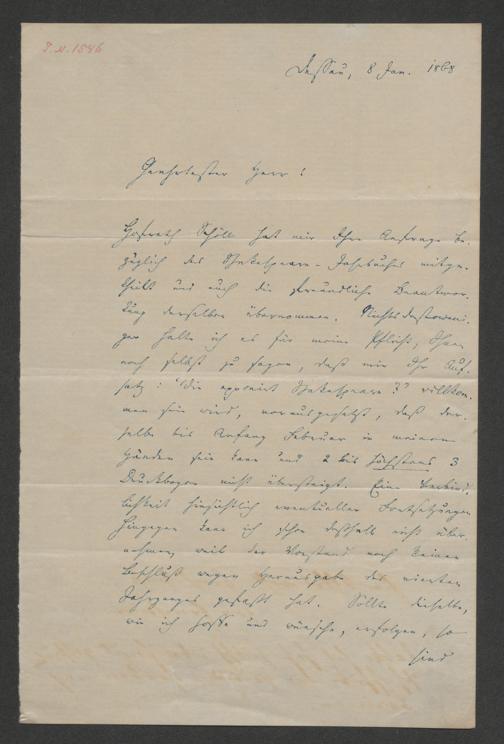 J. N. 1846
Dessau, 8 Jan. 1868
Geehrtester Herr!
Hofrath Schöll hat mir Ihre Anfrage be-
züglich des Shakespeare-Jahrbuches mitge-
theilt und auch die freundliche Beantwor-
tung derselben übernommen. Nichtsdestoweni-
ger halte ich es für meine Pflicht, Ihnen
noch selbst zu sagen, daß mir Ihr Auf-
satz: "Wie Shakespeare?" willkom-
men sein wird, vorausgesetzt, daß der-
selbe bis Anfang Februar in meinen
Händen sein kann und 2 bis höchstens 3
Druckbogen nicht übersteigt. Eine Verbind-
lichkeit hinsichtlich eventueller Fortsetzungen
hingegen kann ich schon deßhalb nicht über-
nehmen, weil der Vorstand noch keinen
Beschluß wegen Herausgabe des vierten
Jahrganges gefaßt hat. Sollte dieselbe,
wie ich hoffe und wünsche, erfolgen, so
sind